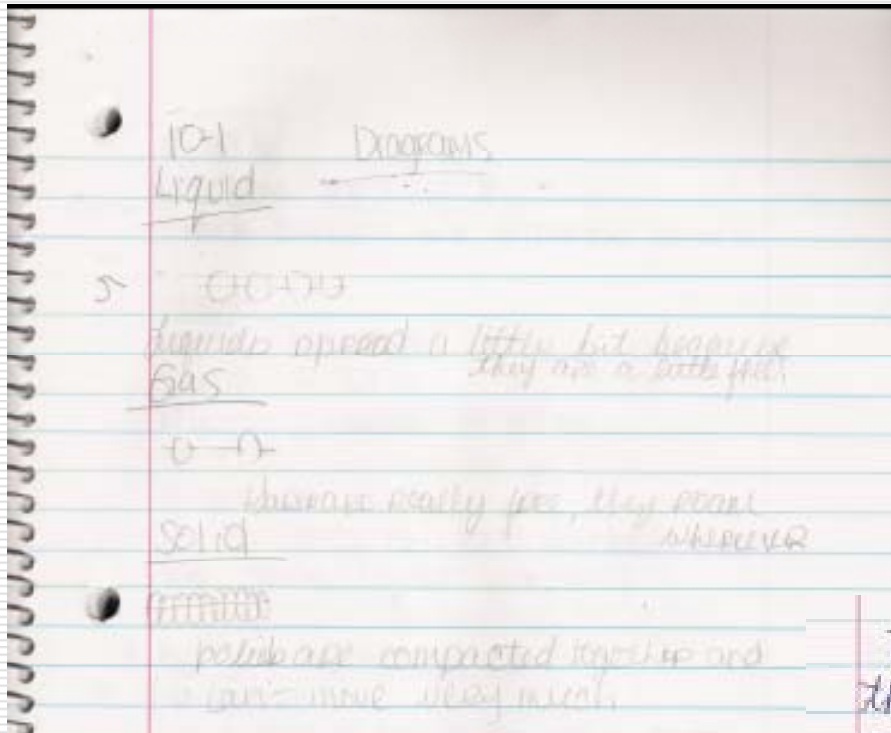 10-1 Diagrams
Liquid
liquids spread a little bit because
they are a little free.
Gas
really free, they roam
wherever
Solid
solids are compacted together and
can't move very much.